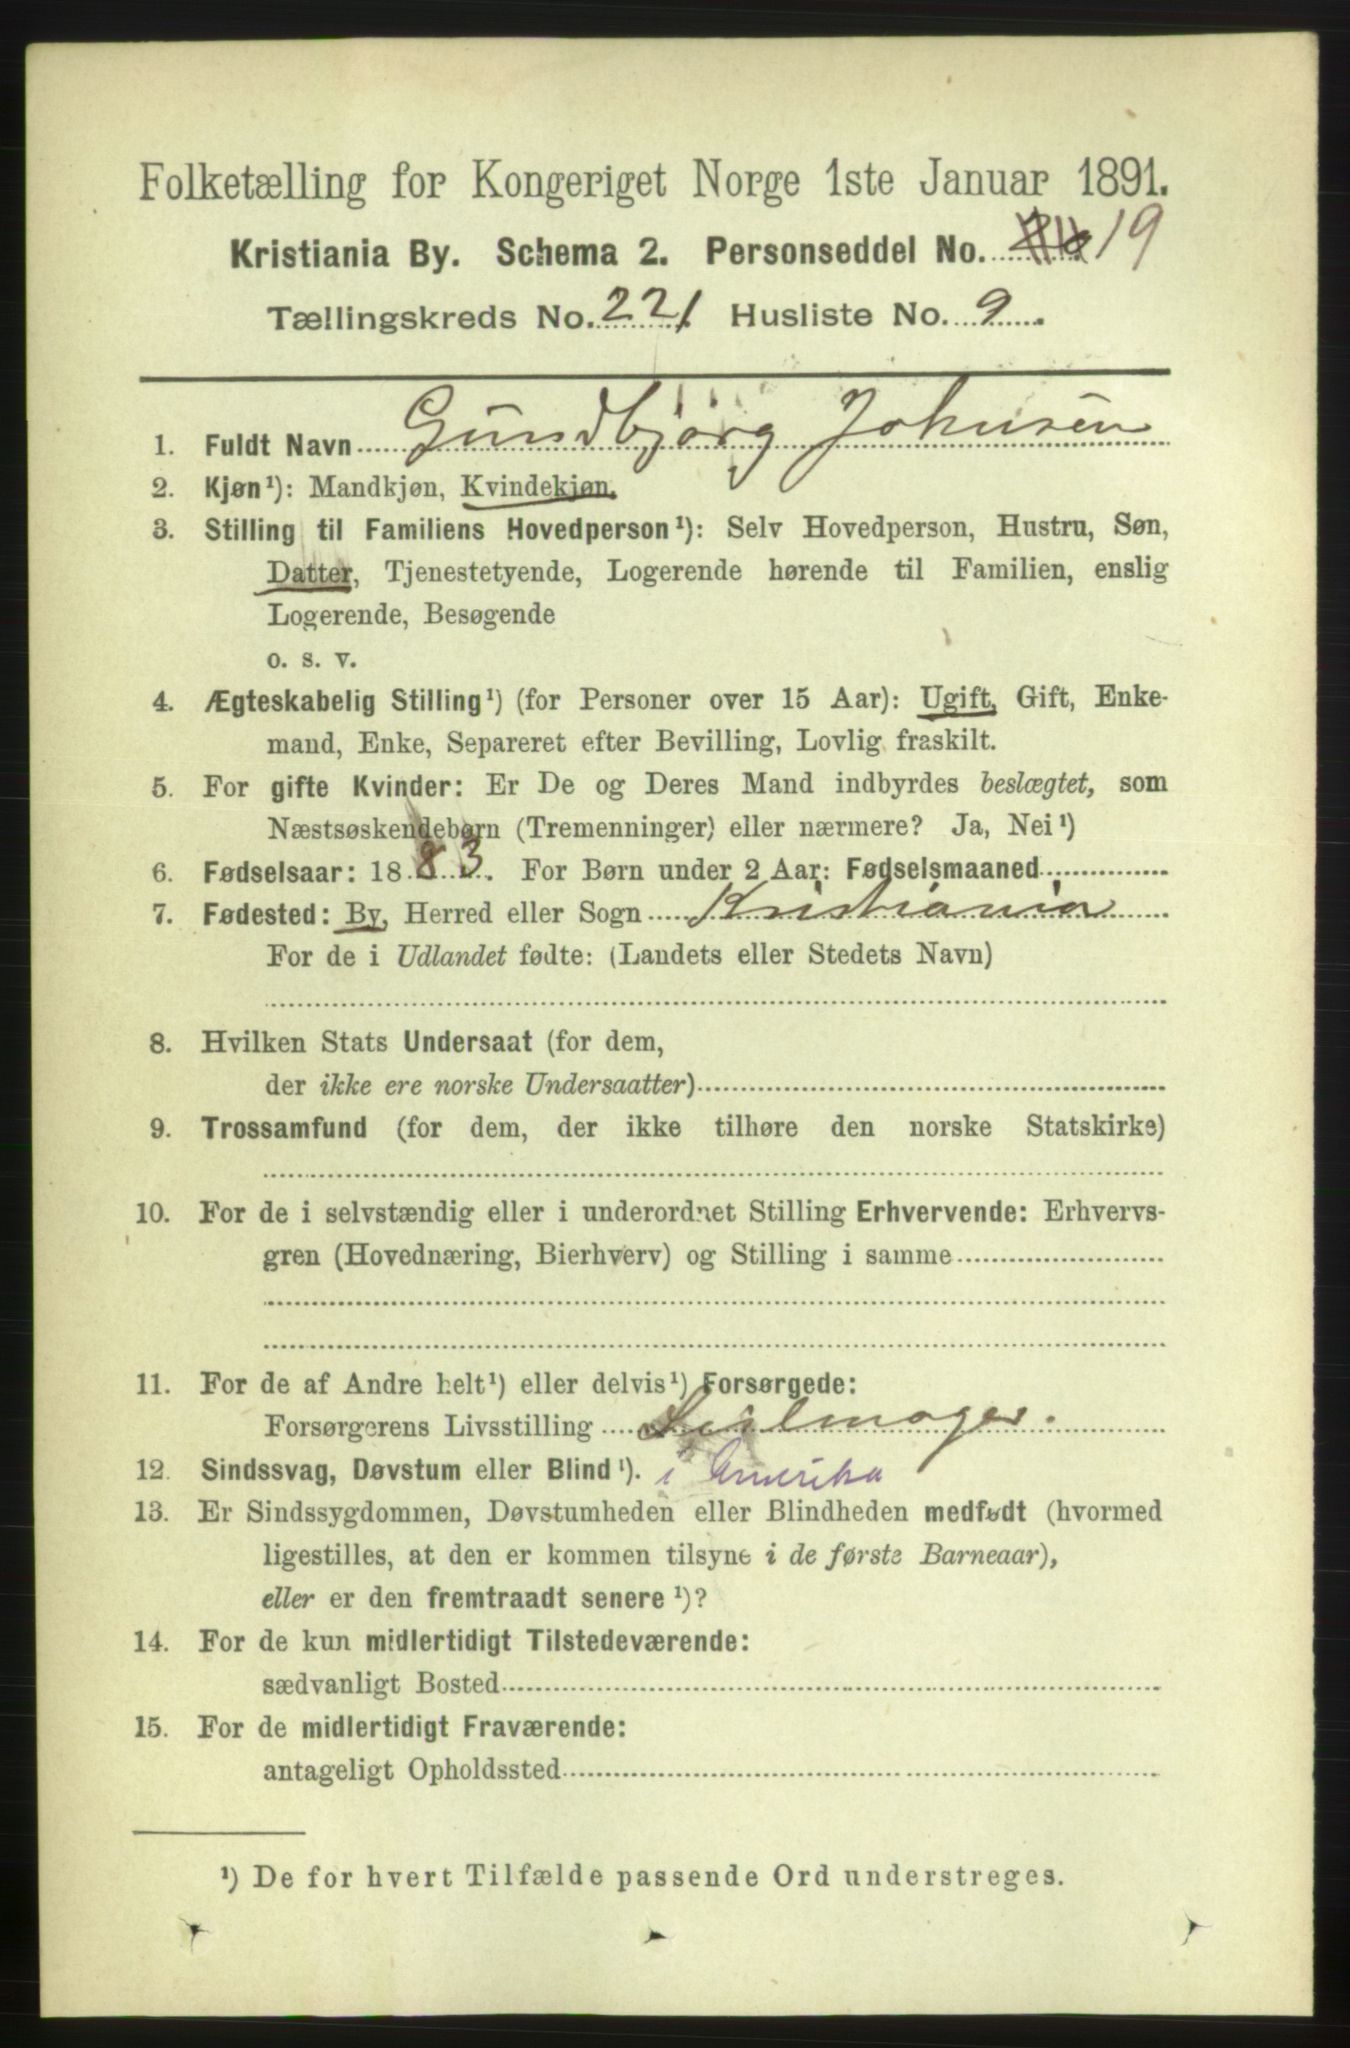 Folketælling for Kongeriget Norge 1ste Januar 1891.
Kristiania By. Schema 2. Personseddel No. 19
Tællingskreds No. 221 Husliste No. 9
1. Fuldt Navn Gundbjørg Johnsen
2. Kjøn¹): Mandkjøn, Kvindekjøn.
3. Stilling til Familiens Hovedperson¹): Selv Hovedperson, Hustru, Søn,
Datter, Tjenestetyende, Logerende hørende til Familien, enslig
Logerende, Besøgende
o. s. v.
4. Ægteskabelig Stilling¹) (for Personer over 15 Aar): Ugift, Gift, Enke-
mand, Enke, Separeret efter Bevilling, Lovlig fraskilt.
5. For gifte Kvinder: Er De og Deres Mand indbyrdes beslægtet, som
Næstsøskendebørn (Tremenninger) eller nærmere? Ja, Nei¹)
6. Fødselsaar: 1883. For Børn under 2 Aar: Fødselsmaaned
7. Fødested: By, Herred eller Sogn Kristiania
For de i Udlandet fødte: (Landets eller Stedets Navn)
8. Hvilken Stats Undersaat (for dem,
der ikke ere norske Undersaatter)
9. Trossamfund (for dem, der ikke tilhøre den norske Statskirke)
10. For de i selvstændig eller i underordnet Stilling Erhvervende: Erhvervs-
gren (Hovednæring, Bierhverv) og Stilling i samme
11. For de af Andre helt¹) eller delvis¹) Forsørgede:
Forsørgerens Livsstilling Seilmager.
12. Sindssvag, Døvstum eller Blind¹). i Amerika
13. Er Sindssygdommen, Døvstumheden eller Blindheden medfødt (hvormed
ligestilles, at den er kommen tilsyne i de første Barneaar),
eller er den fremtraadt senere¹)?
14. For de kun midlertidigt Tilstedeværende:
sædvanligt Bosted
15. For de midlertidigt Fraværende:
antageligt Opholdssted
¹) De for hvert Tilfælde passende Ord understreges.